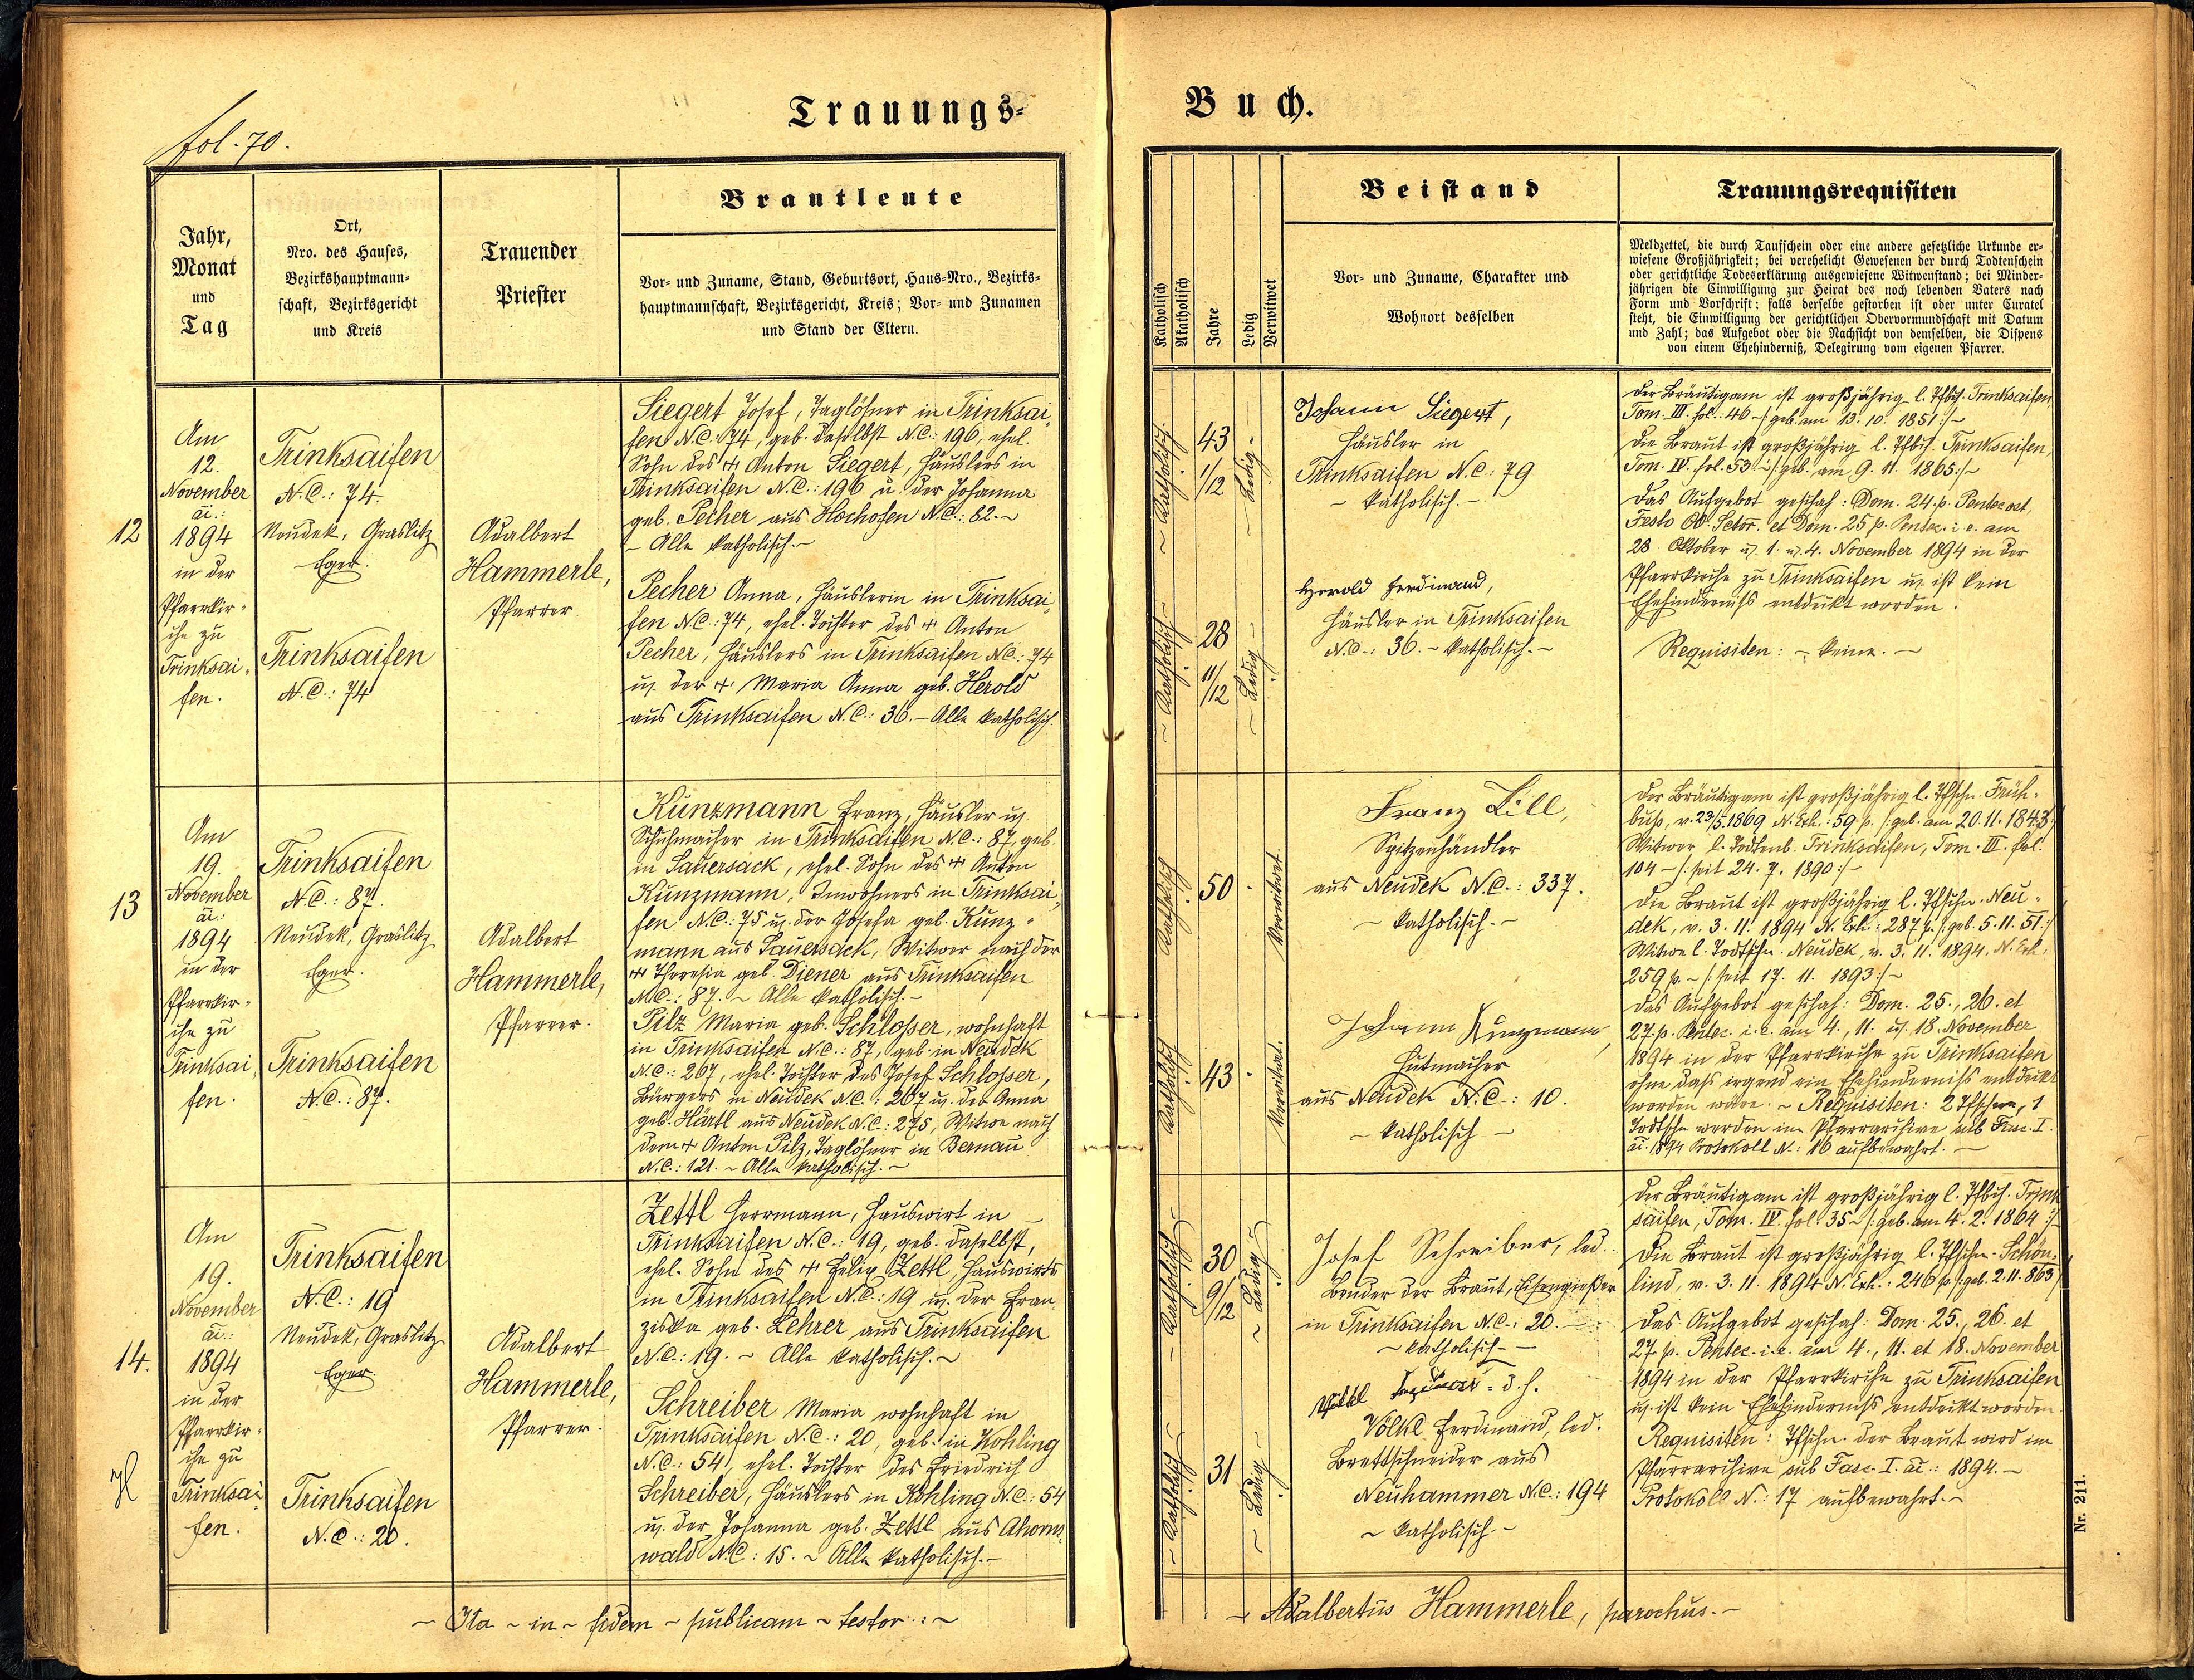 fol. 70.
Trauungs-
Buch.
Jahr,
Monat
und
Tag
Ort,
Nro. des Hauses,
Bezirkshauptmann-
schaft, Bezirksgericht
und Kreis
Trauender
Priester
Brautleute
Vor- und Zuname, Stand, Geburtsort, Haus-Nro., Bezirks-
hauptmannschaft, Bezirksgericht, Kreis; Vor- und Zunamen
und Stand der Eltern.
Katholisch
Akatholisch
Jahre
Ledig
Verwitwet
Beistand
Vor- und Zuname, Charakter und
Wohnort desselben
Trauungsrequisiten
Meldzettel, die durch Taufschein oder eine andere gesetzliche Urkunde er-
wiesene Großjährigkeit; bei verehelicht Gewesenen der durch Todtenschein
oder gerichtliche Todeserklärung ausgewiesene Witwenstand; bei Minder-
jährigen die Einwilligung zur Heirat des noch lebenden Vaters nach
Form und Vorschrift; falls derselbe gestorben ist oder unter Curatel
steht, die Einwilligung der gerichtlichen Obervormundschaft mit Datum
und Zahl; das Aufgebot oder die Nachsicht von demselben, die Dispens
von einem Ehehinderniß, Delegirung vom eigenen Pfarrer.
12
Am
12.
November
ai.:
1894
in der
Pfarrkir-
che zu
Trinksai-
fen.
Trinksaifen
N.C.: 74.
Neudek, Graslitz
Eger.
Trinksaifen
N.C.: 74
Adalbert
Hammerle,
Pfarrer.
Siegert Josef, Taglöhner in Trinksai-
fen N.C.: 74, geb. daselbst N.C.: 196, ehel.
Sohn des ++ Anton Siegert, Häuslers in
Trinksaifen N.C.: 196 u. der Johanna
geb. Pecher aus Hochofen N.C.: 82.-
- Alle katholisch.-
Pecher Anna, Häuslerin in Trinksai-
fen N.C.: 74, ehel. Tochter des ++ Anton
Pecher, Häuslers in Trinksaifen N.C.: 74
u. der + Maria Anna geb. Herold
aus Trinksaifen N.C.: 36.- Alle katholisch.
- Katholisch.
43
1/12
- Ledig -
- Katholisch -
28
11/12
- Ledig -
Johann Siegert,
Häusler in
Trinksaifen N.C.: 79
- katholisch.-
Herold Ferdinand,
Häusler in Trinksaifen
N.C.: 36.- katholisch.-
Der Bräutigam ist großjährig l. Tfbch. Trinksaifen,
Tom. III. fol.: 46 -/: geb. am 13. 10. 1851:/-
Die Braut ist großjährig l. Tfbch. Trinksaifen,
Tom. IV. fol. 53 -/: geb. am 9. 11. 1865:/-
Das Aufgebot geschah: Dom. 24. p. Pentecost,
Festo OO. Sctor. et Dom. 25 p. Pentec. i. e. am
28. Oktober u. 1. u. 4. November 1894 in der
Pfarrkirche zu Trinksaifen u. ist kein
Ehehinderniß entdeckt worden.
Requisiten: - keine. -
13
Am
19.
November
ai.:
1894
in der
Pfarrkir-
che zu
Trinksai-
fen.
Trinksaifen
N.C.: 87.
Neudek, Graslitz
Eger.
Trinksaifen
N.C.: 87.
Adalbert
Hammerle,
Pfarrer.
Kunzmann Franz, Häusler u.
Schuhmacher in Trinksaifen N.C.: 87, geb.
in Sauersack, ehel. Sohn des ++ Anton
Kunzmann, Inwohners in Trinksai-
fen N.C.: 75 u. der Josefa geb. Kunz-
mann aus Sauersack, Witwer nach der
++ Theresia geb. Diener aus Trinksaifen
N.C.: 87. - Alle katholisch.-
Pilz Maria geb. Schlosser, wohnhaft
in Trinksaifen N.C.: 87, geb. in Neudek
N.C.: 267, ehel. Tochter des Josef Schlosser,
Bürgers in Neudek N.C.: 267 u. der Anna
geb. Härtl aus Neudek N.C.: 275, Witwe nach
dem + Anton Pilz, Taglöhner in Bernau
N.C.: 121. - Alle katholisch. -
Katholisch
50
Verwitwet.
Katholisch
43
Verwitwet.
Franz Lill,
Spitzenhändler
aus Neudek N.C.: 337.
- katholisch.-
Johann Kunzmann,
Hutmacher
aus Neudek N.C.: 10.
- katholisch -
Der Bräutigam ist großjährig l. Tfschn. Früh-
buß, v. 23/5 1869 N. Exh.: 59 p. /: geb. am 20. 11. 1843:/
Witwer l. Todtenb. Trinksaifen, Tom. III. fol.
104 -/: seit 24. 7. 1890:/-
Die Braut ist großjährig l. Tfschn. Neu-
dek, v. 3. 11. 1894 N. Exh.: 287 p. /: geb. 5. 11. 51:/
Witwe l. Todtschn. Neudek, v. 3. 11. 1894. N. Exh.
259 p. -/: seit 17. 11. 1893:/-
Das Aufgebot geschah: Dom. 25., 26. et
27. p. Pentec. i. e. am 4., 11. u. 18. November
1894 in der Pfarrkirche zu Trinksaifen
ohne daß irgend ein Ehehinderniß entdeckt
worden wäre. - Requisiten: 2 Tfschne, 1
Todtschn werden im Pfarrarchive sub Fasc. I.
ai. 1894 Protokoll N.: 16 aufbewahrt. -
14.
Am
19.
November
ai.:
1894
in der
Pfarrkir-
che zu
Trinksai-
fen.
Trinksaifen
N.C.: 19
Neudek, Graslitz
Eger.
Trinksaifen
N.C.: 20.
Adalbert
Hammerle,
Pfarrer.
Zettl Herrmann, Hauswirt in
Trinksaifen N.C.: 19, geb. daselbst,
ehel. Sohn des ++ Felix Zettl, Hauswirts
in Trinksaifen N.C.: 19 u. der Fran-
ziska geb. Lehrer aus Trinksaifen
N.C.: 19. - Alle katholisch. -
Schreiber Maria wohnhaft in
Trinksaifen N.C.: 20, geb. in Kohling
N.C.: 54, ehel. Tochter des Friedrich
Schreiber, Häuslers in Kohling N.C.: 54
u. der Johanna geb. Zettl aus Ahorns-
wald N.C.: 15. - Alle katholisch.-
- Katholisch -
30
9/12
- Ledig -
- Katholisch -
31
- Ledig -
Josef Schreiber, led.
Bruder der Braut, Eisengießer
in Trinksaifen N.C.: 20. -
- katholisch. -
Völkl d. h.
Völkl Ferdinand, led.
Brettschneider aus
Neuhammer N.C.: 194
- katholisch.-
Der Bräutigam ist großjährig l. Tfbch. Trink-
saifen, Tom. IV. fol. 35 -/: geb. am 4. 2. 1864:/
Die Braut ist großjährig l. Tfschn. Schön-
lind, v. 3. 11. 1894 N. Exh.: 246 p. /: geb. 2. 11. 863:/
Das Aufgebot geschah: Dom. 25., 26. et
27. p. Pentec. i. e. am 4., 11. et 18. November
1894 in der Pfarrkirche zu Trinksaifen
u. ist kein Ehehinderniß entdeckt worden.
Requisiten: Tfschn. der Braut wird im
Pfarrarchive sub Fasc. I. ai.: 1894. -
Protokoll N.: 17 aufbewahrt. -
- Ita - in - fidem - publicam - testor: -
- Adalbertus Hammerle, parochus. -
Nr. 211.